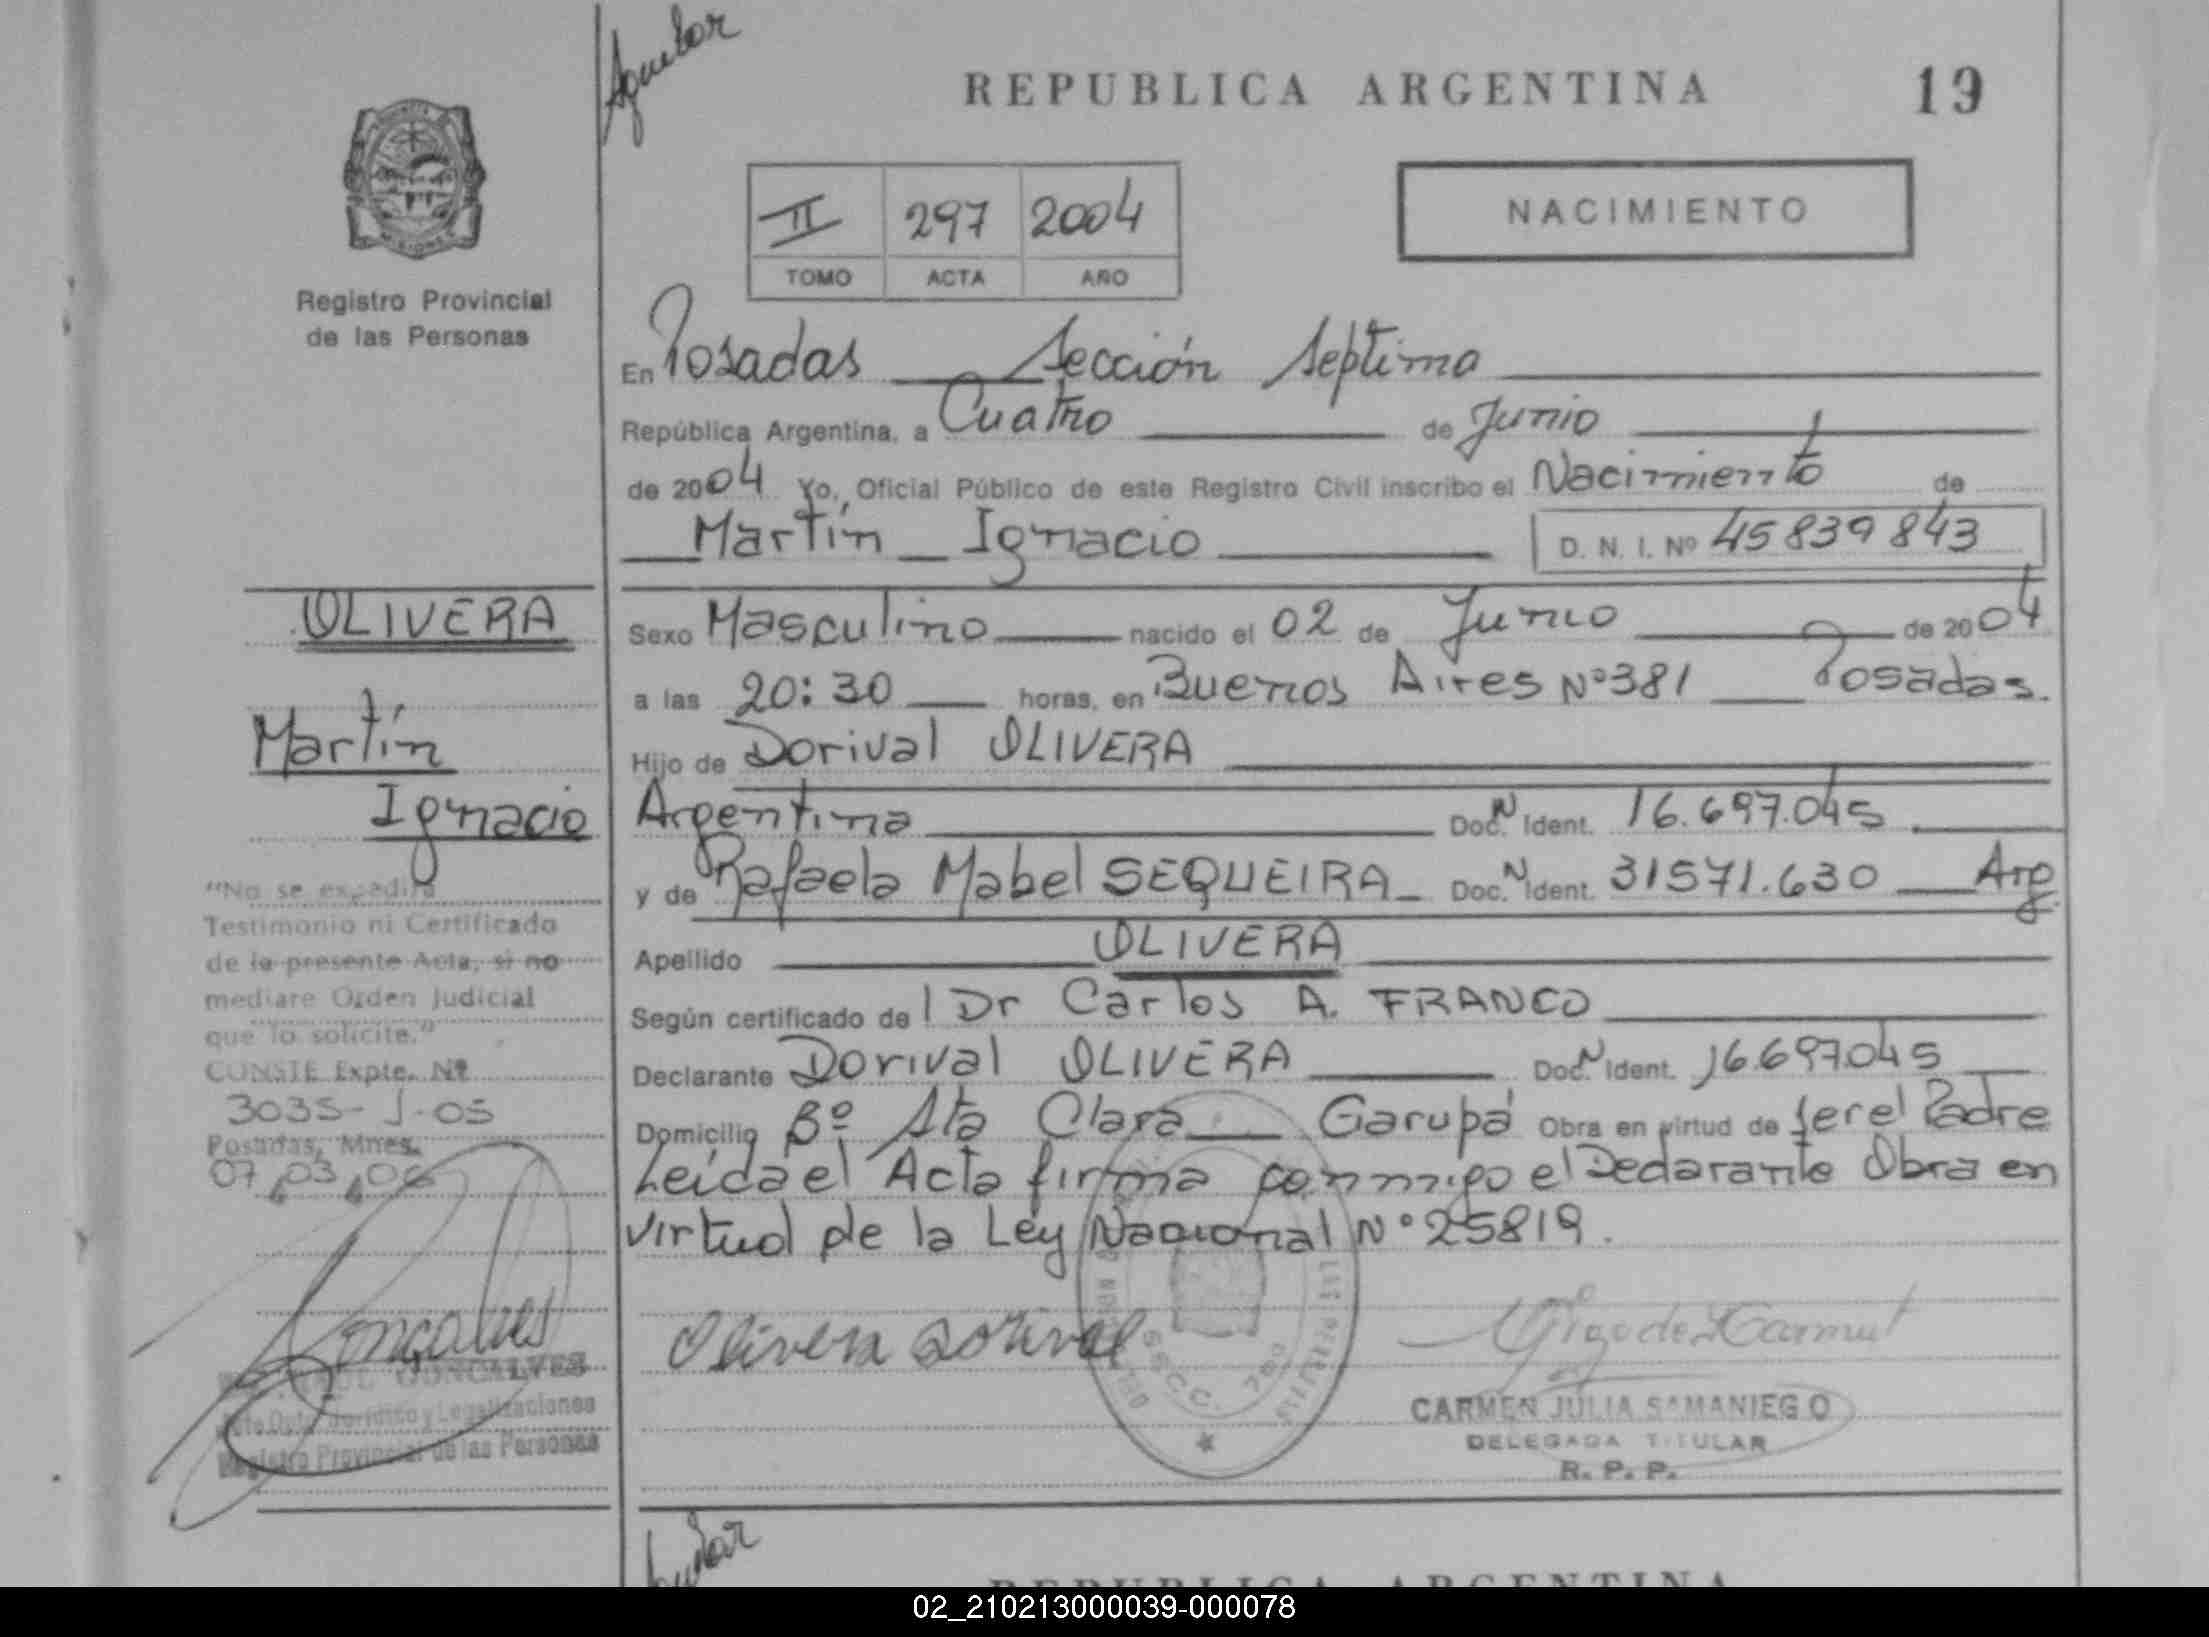 Aguilar
REPUBLICA ARGENTINA
19
MISIONES
Registro Provincial
de las Personas
II 297 2004
TOMO ACTA AÑO
NACIMIENTO
En Posadas Sección Septima
República Argentina, a Cuatro de Junio
de 2004 Yo, Oficial Público de este Registro Civil inscribo el Nacimiento de
Martín Ignacio D. N. I. Nº 45839843
Sexo Masculino nacido el 02 de Junio de 2004
a las 20:30 horas, en Buenos Aires Nº381 Posadas.
Hijo de Dorival OLIVERA
Argentina Doc. N Ident. 16.697.045
y de Rafaela Mabel SEQUEIRA Doc. N Ident. 31571.630 Arg
Apellido OLIVERA
Según certificado del Dr Carlos A. FRANCO
Declarante Dorival OLIVERA Doc. N Ident. 16.697.045
Domicilio Bº Sta Clara Garupá Obra en virtud de ser el Padre
Leída el Acta firma conmigo el Declarante Obra en
virtud de la Ley Nacional Nº 25819.
Olivera Dorival
CARMEN JULIA SAMANIEGO
DELEGADA TITULAR
R. P. P.
OLIVERA
Martín
Ignacio
"No se expedirá
Testimonio ni Certificado
de la presente Acta, si no
mediare Orden Judicial
que lo solicite."
CONSTE Expte. Nº
3035-J-05
Posadas, Mnes.
07,03,06
Goncalves
RAUL GONCALVES
Jefe Dpto. Jurídico y Legalizaciones
Registro Provincial de las Personas
REPUBLICA ARGENTINA
02_210213000039-000078